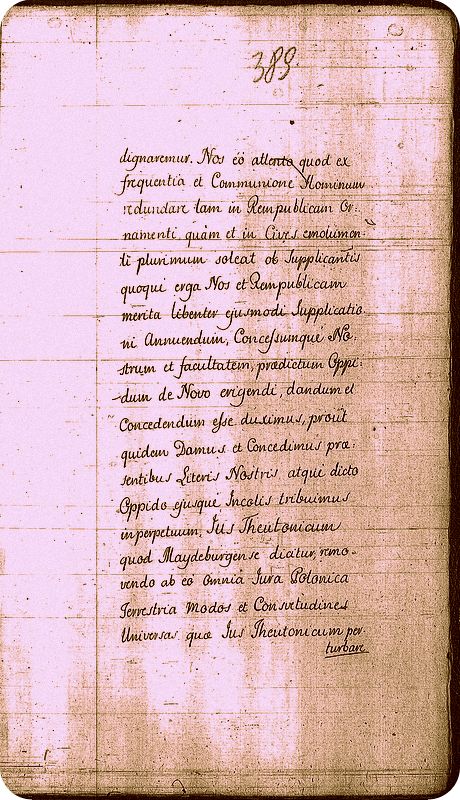 389.
dignaremur. Nos eò attento quod ex
frequentia et Communione Hominum
redundare tam in Rempublicam Or:
namenti, quàm et in Cives emolumen-
ti plurimum soleat ob Supplicantis
quoqui erga Nos et Rempublicam
merita libenter ejusmodi Supplicatio
ni Annuendum, Concessumque No.
strum et facultatem, prædictum Oppi:
dum de Novo erigendi, dandum et
Concedendum esse duximus, proüt
quidem Damus et Concedimus præ:
sentibus Literis Nostris atqui dicto
Oppido ejusque Incolis tribuimus
in perpetuum, Jus Theutonicum
quod Maydeburgense dicitur, remo-
vendo ab eo omnia Jura Polonica
Terrestria Modos et Consvetudines
Universas quæ Jus Theutonicum per
turbare